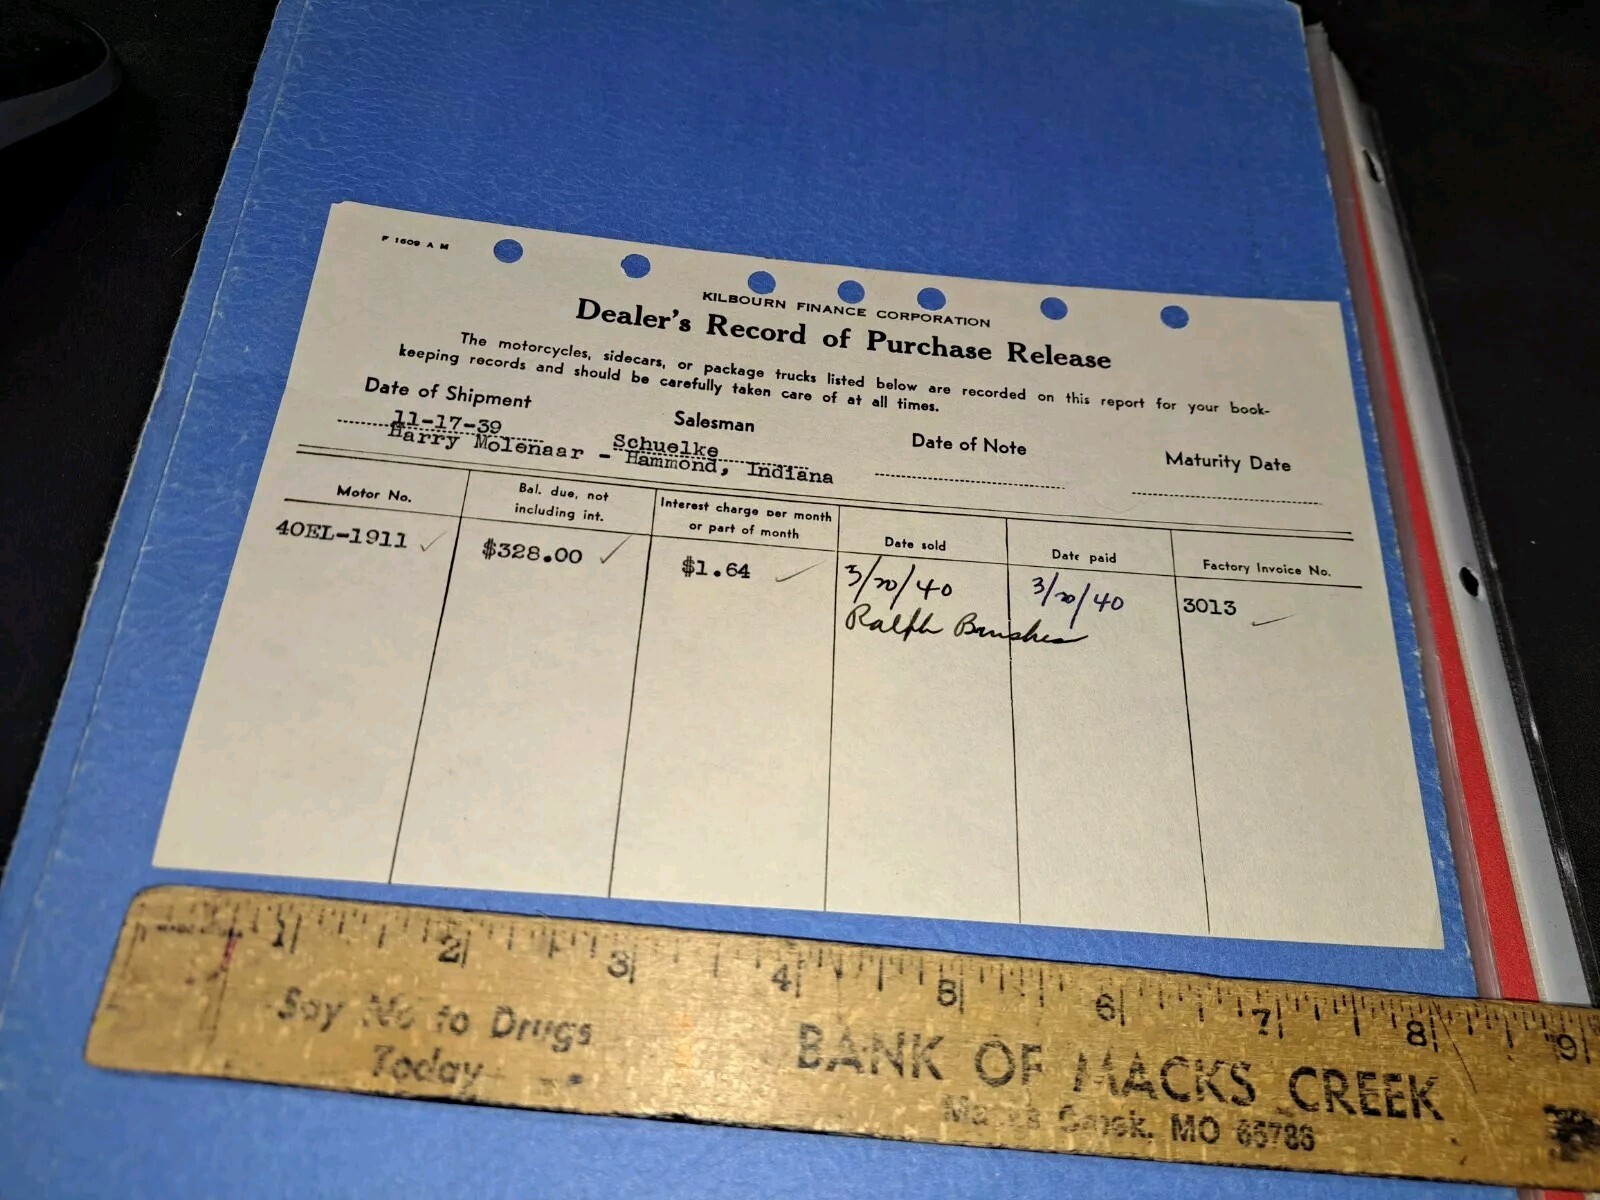 F 1609 A M
KILBOURN FINANCE CORPORATION
Dealer's Record of Purchase Release
The motorcycles, sidecars, or package trucks listed below are recorded on this report for your book-
keeping records and should be carefully taken care of at all times.
Date of Shipment Salesman Date of Note Maturity Date
11-17-39 Schuelke
Harry Molenaar - Hammond, Indiana
Motor No. Bal. due, not including int. Interest charge per month or part of month Date sold Date paid Factory Invoice No.
40EL-1911 ✓ $328.00 ✓ $1.64 ✓ 3/20/40 3/20/40 3013 ✓
Ralph
1 2 3 4 5 6 7 8 9
Say No to Drugs
Today
BANK OF MACKS CREEK
Macks Creek, MO 65786